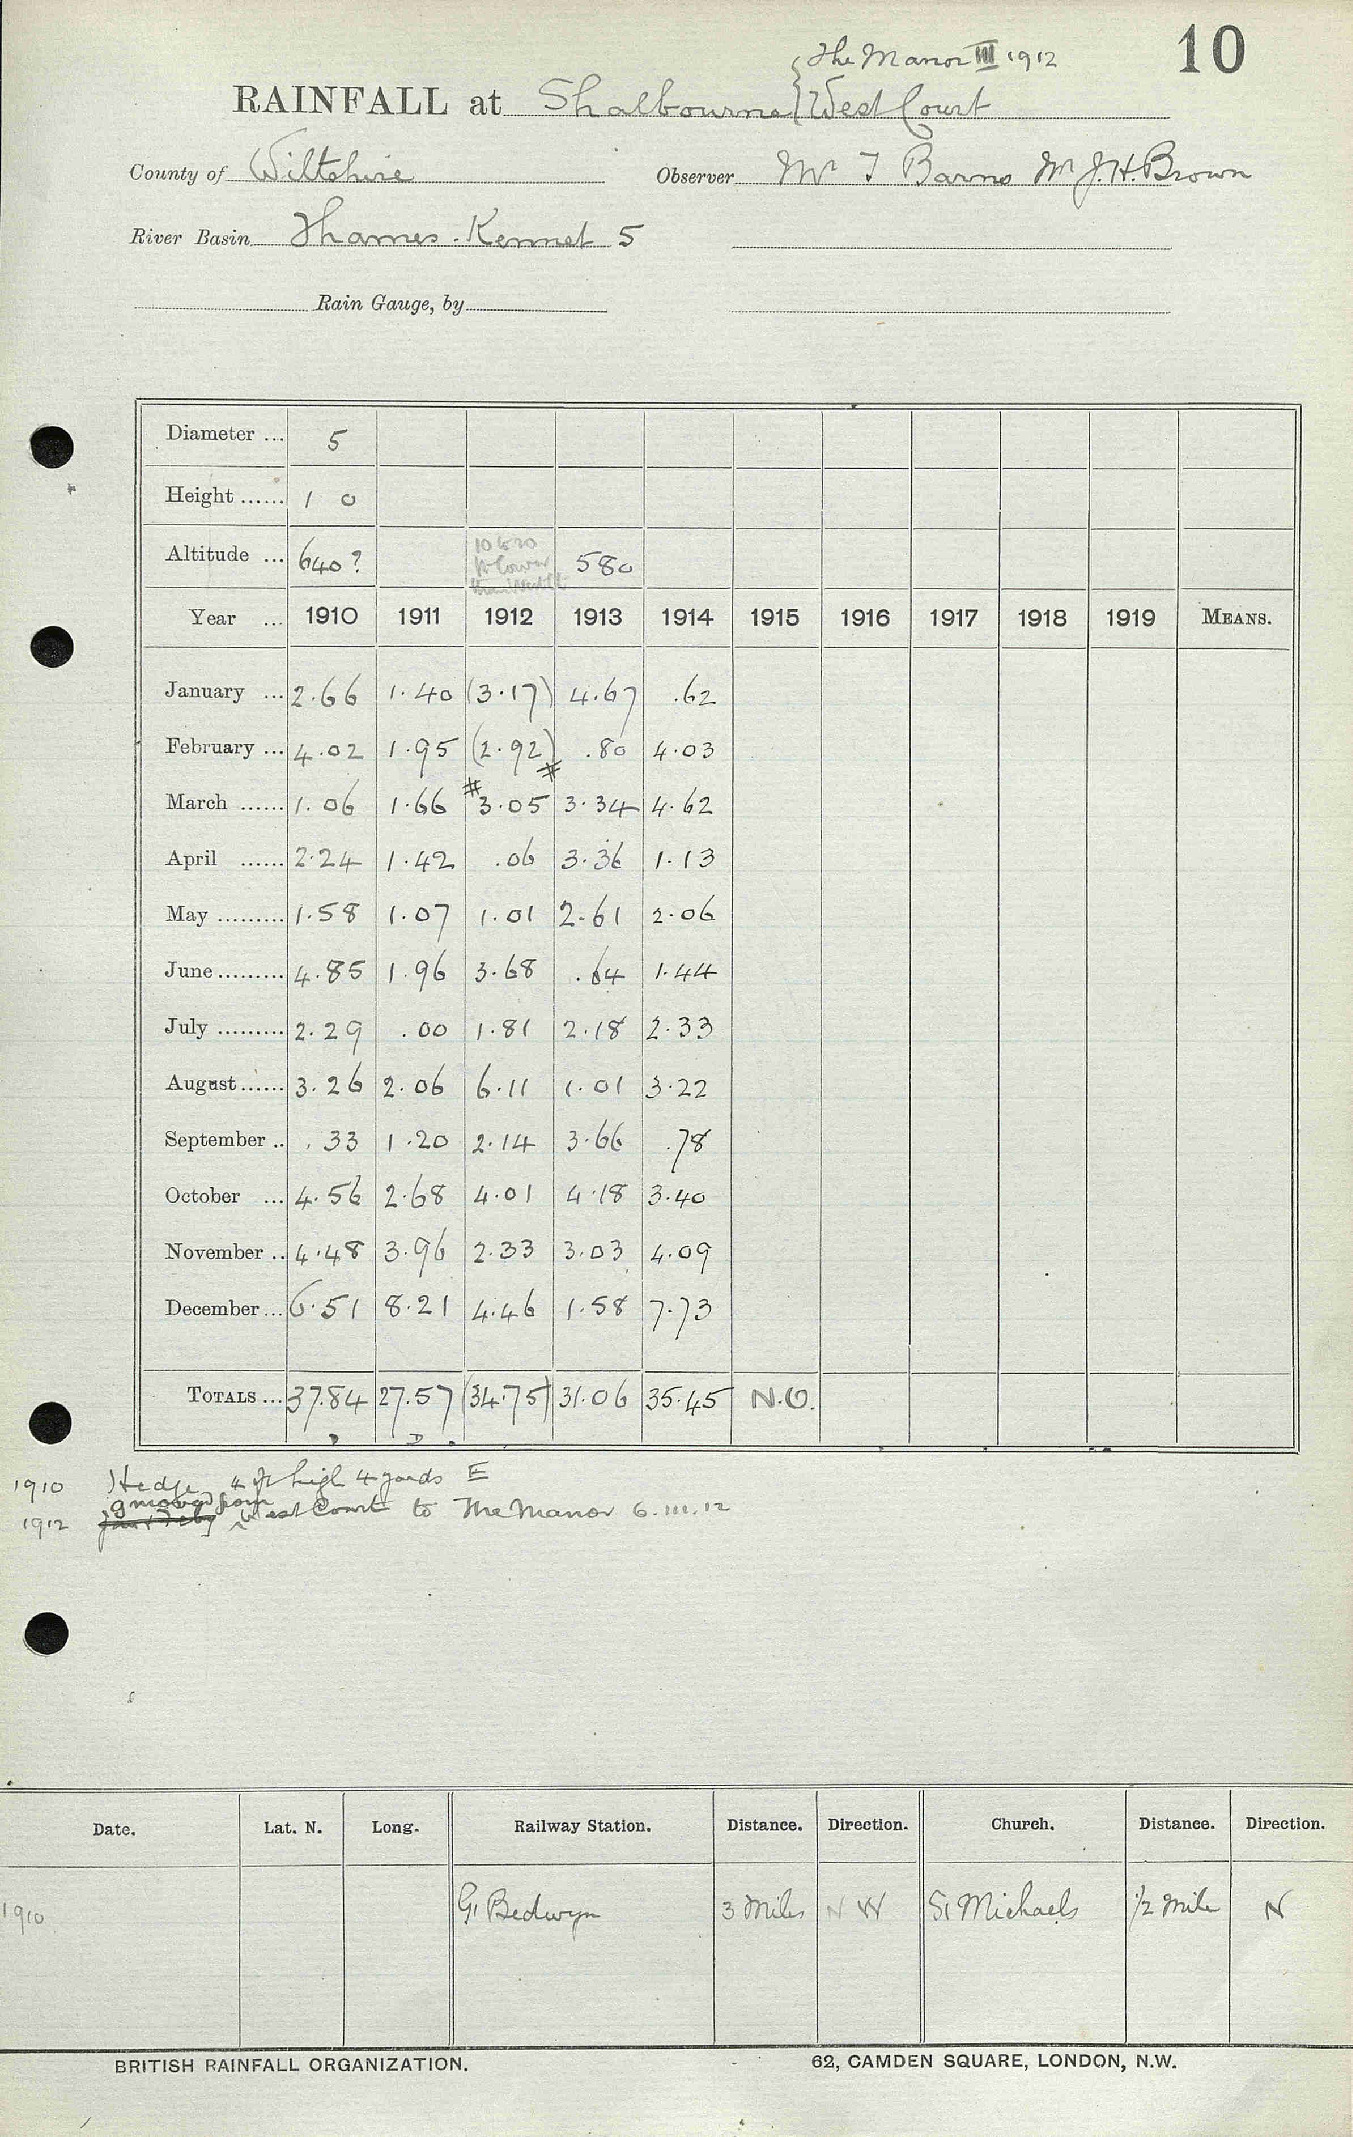 10
The Manor III 1912
RAINFALL at Shalbourne { West Court
County of Wiltshire Observer Mr T Barnes Mr J.H. Brown
River Basin Thames - Kennet 5
Rain Gauge, by
Diameter ... 5
Height ...... 1 0
Altitude ... 640? 10 to 20 ft lower than West Ct 580
Year ... 1910 1911 1912 1913 1914 1915 1916 1917 1918 1919 MEANS.
January ... 2.66 1.40 (3.17) 4.67 .62
February ... 4.02 1.95 (2.92) .80 4.03
March ...... 1.06 1.66 #3.05 # 3.34 4.62
April ...... 2.24 1.42 .06 3.36 1.13
May ......... 1.58 1.07 1.01 2.61 2.06
June ......... 4.85 1.96 3.68 .64 1.44
July ......... 2.29 .00 1.81 2.18 2.33
August ...... 3.26 2.06 6.11 1.01 3.22
September .. .33 1.20 2.14 3.66 .78
October ... 4.56 2.68 4.01 4.18 3.40
November .. 4.48 3.96 2.33 3.03 4.09
December ... 6.51 8.21 4.46 1.58 7.73
TOTALS ... 37.84 27.57 (34.75) 31.06 35.45 N.O.
1910 Hedge 4 ft high 4 yards E
1912 G moved from West Court to The Manor 6.III.12
Date. Lat. N. Long. Railway Station. Distance. Direction. Church. Distance. Direction.
1910 Gt Bedwyn 3 Miles N W St Michaels 1/2 Mile N
BRITISH RAINFALL ORGANIZATION. 62, CAMDEN SQUARE, LONDON, N.W.